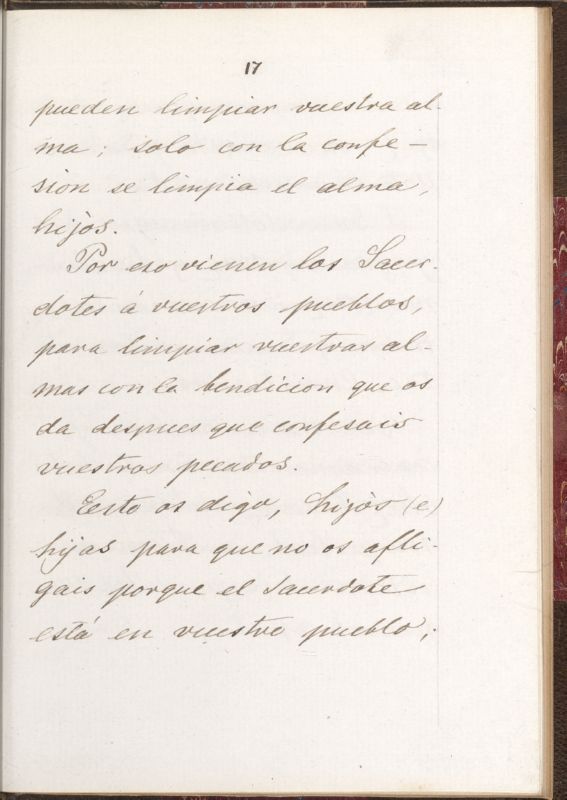 17
pueden limpiar vuestra al-
ma; solo con la confe-
sion se limpia el alma,
hijos.
Por eso vienen los Sacer-
dotes á vuestros pueblos,
para limpiar vuestras al-
mas con la bendicion que os
da despues que confesais
vuestros pecados.
Eesto os digo, hijos (e)
hijas para que no os afli-
gais porque el Sacerdote
está en vuestro pueblo;